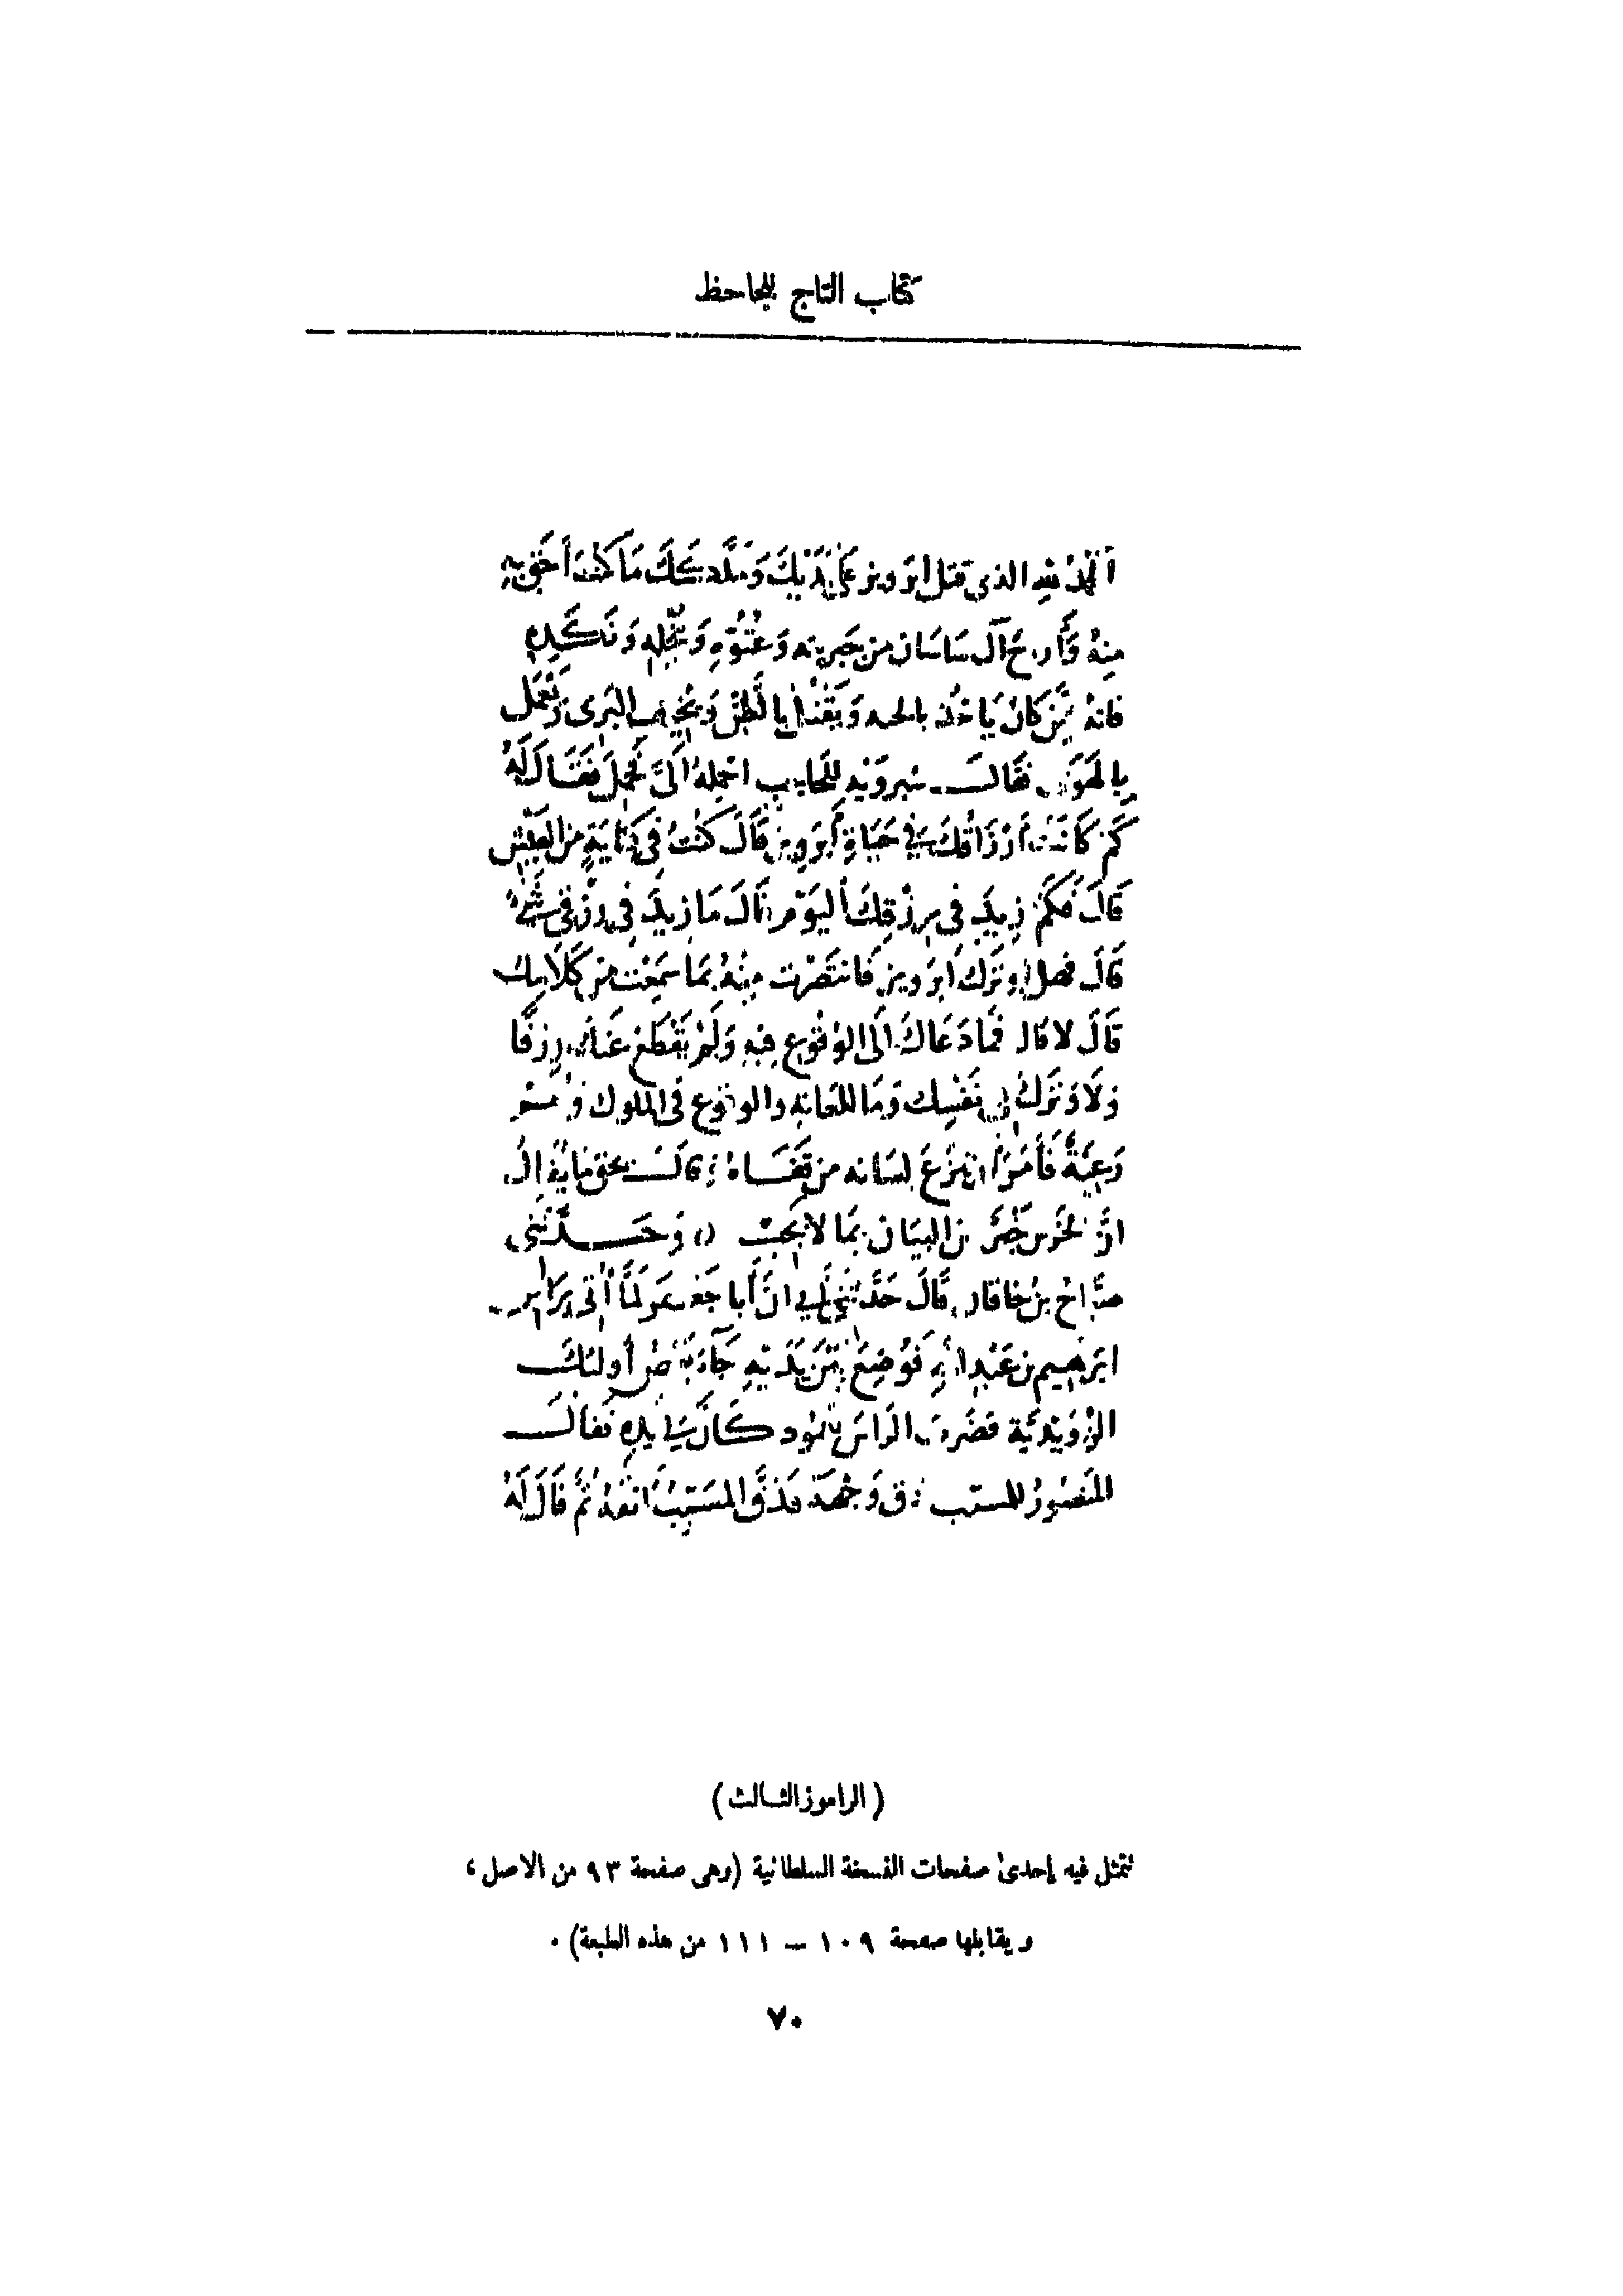 كتاب التاج للجاحظ
الحمد لله الذى قتل ابرويز على يديك وملكك ما كنت أحق به
منه وأراح آل ساسان من جبريته وعتوه وبخله ونكده
فانه ممن كان ياخذ بالحبة ويقتل بالظن ويخيف البرى ويعمل
بالهوى فقال شيرويه للحاجب احمله الى فحمل فقال له
كم كانت أرزاقك فى حياة أبرويز قال كنت فى كفاية من العيش
قال فكم زيد فى رزقك اليوم قال ما زيد فى رزقى شئ
قال فهل وترك ابرويز فانتصرت منه بما سمعت من كلامك
قال لا قال فما دعاك الى الوقوع فيه ولم يقطع عنك رزقا
ولا وترك فى نفسك وما للعامة والوقوع فى الملوك وهم
رعية فأمر ان ينزع لسانه من قفاه وقال بحق ما يقال
ان الخرس خير من البيان بما لا يجب وحدثنى
صباح بن خاقان قال حدثنى أبى ان أبا جعفر لما أتى براس
ابرهيم بن عبد الله فوضع بين يديه جاء بعض أولئك
الراوندية فضرب الراس بعمود كان فى يده فقال
المنصور للمسيب دق وجهه فدق المسيب انفه ثم قال له
(الراموز الثالث)
تتمثل فيه إحدى صفحات النسخة السلطانية (وهى صفحة ٩٣ من الاصل ،
ويقابلها صفحة ١٠٩ – ١١١ من هذه الطبعة) .
٧٠